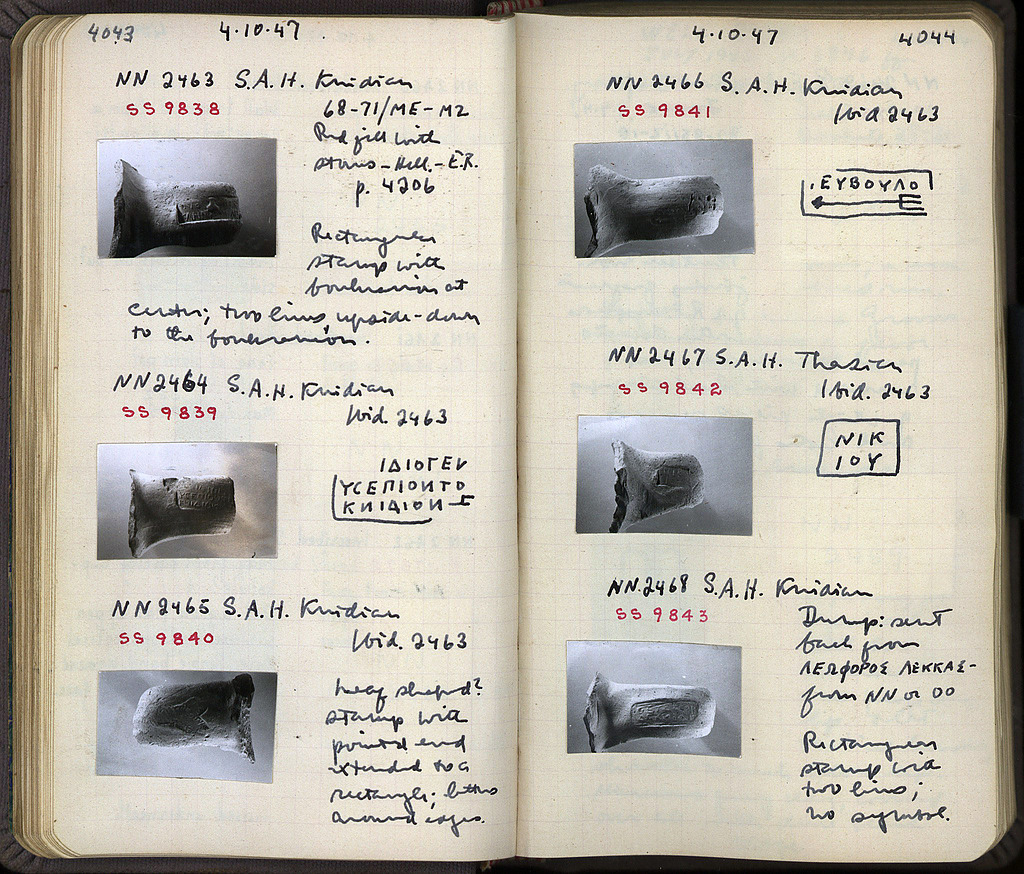 4043
4·10·47.
NN 2463 S.A.H. Knidian
SS 9838
68-71/ME-MZ
Red fill with
stamps - Hell. - E.R.
p. 4206
Rectangular
stamp with
boukranion at
center; two lines upside-down
to the boukranion.
NN 2464 S.A.H. Knidian
SS 9839
Ibid. 2463
ΙΔΙΟΓΕΝ
ΥСΕΠΙΟΝΤΟ
ΚΝΙΔΙΟΝ
NN 2465 S.A.H. Knidian
SS 9840
Ibid. 2463
Leaf shaped?
stamp with
pointed end
extended to a
rectangle; letters
around edges.
4·10·47
4044
NN 2466 S.A.H. Knidian
SS 9841
Ibid 2463
.ΕΥΒΟΥΛΟ
NN 2467 S.A.H. Thasian
SS 9842
Ibid. 2463
ΝΙΚ
ΙΟΥ
NN.2468 S.A.H. Knidian
SS 9843
Dump: sent
back from
ΛΕΩΦΟΡΟΣ ΛΕΚΚΑΣ-
from NN or OO
Rectangular
stamp with
two lines;
no symbol.